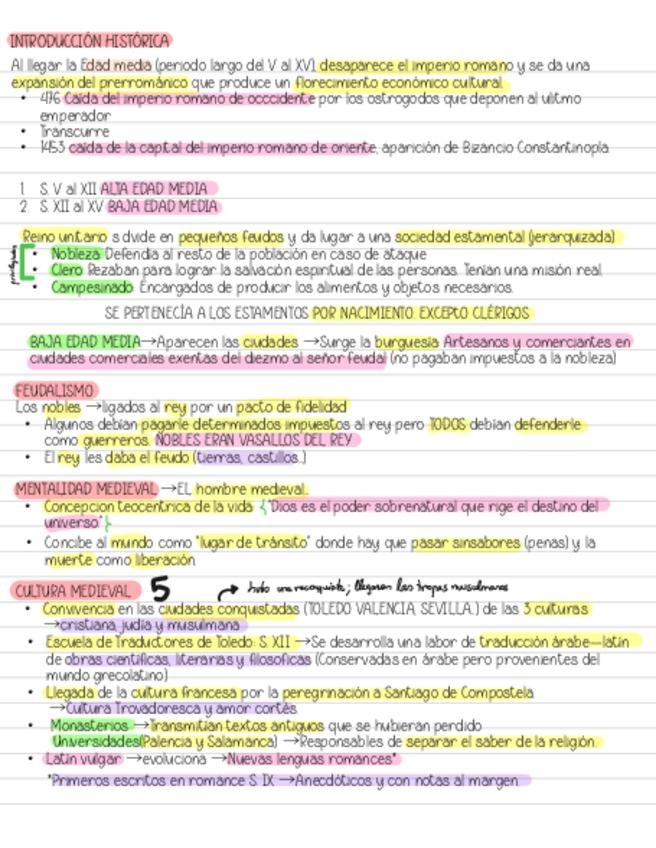 INTRODUCCIÓN HISTÓRICA
Al llegar la Edad media (periodo largo del V al XV), desaparece el imperio romano y se da una
expansión del prerrománico que produce un florecimiento económico cultural.
• 476 Caída del imperio romano de occcidente por los ostrogodos que deponen al ulitmo
emperador
• Transcurre
• 1453 caída de la capital del imperio romano de oriente, aparición de Bizancio Constantinopla.
1. S. V al XII ALTA EDAD MEDIA
2. S. XII al XV BAJA EDAD MEDIA
Reino unitario s divide en pequeños feudos y da lugar a una sociedad estamental (jerarquizada)
• Nobleza Defendía al resto de la población en caso de ataque
• Clero Rezaban para lograr la salvación espiritual de las personas. Tenían una misión real.
• Campesinado Encargados de producir los alimentos y objetos necesarios.
SE PERTENECÍA A LOS ESTAMENTOS POR NACIMIENTO. EXCEPTO CLÉRIGOS
BAJA EDAD MEDIA→Aparecen las ciudades →Surge la burguesía Artesanos y comerciantes en
ciudades comerciales exentas del diezmo al señor feudal (no pagaban impuestos a la nobleza)
FEUDALISMO
Los nobles →ligados al rey por un pacto de fidelidad
• Algunos debían pagarle determinados impuestos al rey pero TODOS debían defenderle
como guerreros. NOBLES ERAN VASALLOS DEL REY
• El rey les daba el feudo (tierras, castillos..)
MENTALIDAD MEDIEVAL →EL hombre medieval..
• Concepcion teocentrica de la vida {"Dios es el poder sobrenatural que rige el destino del
universo"}
• Concibe al mundo como "lugar de tránsito" donde hay que pasar sinsabores (penas) y la
muerte como liberación
CULTURA MEDIEVAL 5 → hubo una reconquista; llegaron las tropas musulmanas
• Convivencia en las ciudades conquistadas (TOLEDO VALENCIA, SEVILLA..) de las 3 culturas
→cristiana, judía y musulmana
• Escuela de Traductores de Toledo: S. XII →Se desarrolla una labor de traducción árabe—latín
de obras científicas, literarias y filosoficas (Conservadas en árabe pero provenientes del
mundo grecolatino)
• Llegada de la cultura francesa por la peregrinación a Santiago de Compostela
→Cultura Trovadoresca y amor cortés.
• Monasterios →Transmitían textos antiguos que se hubieran perdido
Universidades(Palencia y Salamanca) →Responsables de separar el saber de la religión.
• Latín vulgar →evoluciona →Nuevas lenguas romances*
*Primeros escritos en romance S. IX →Anecdóticos y con notas al margen